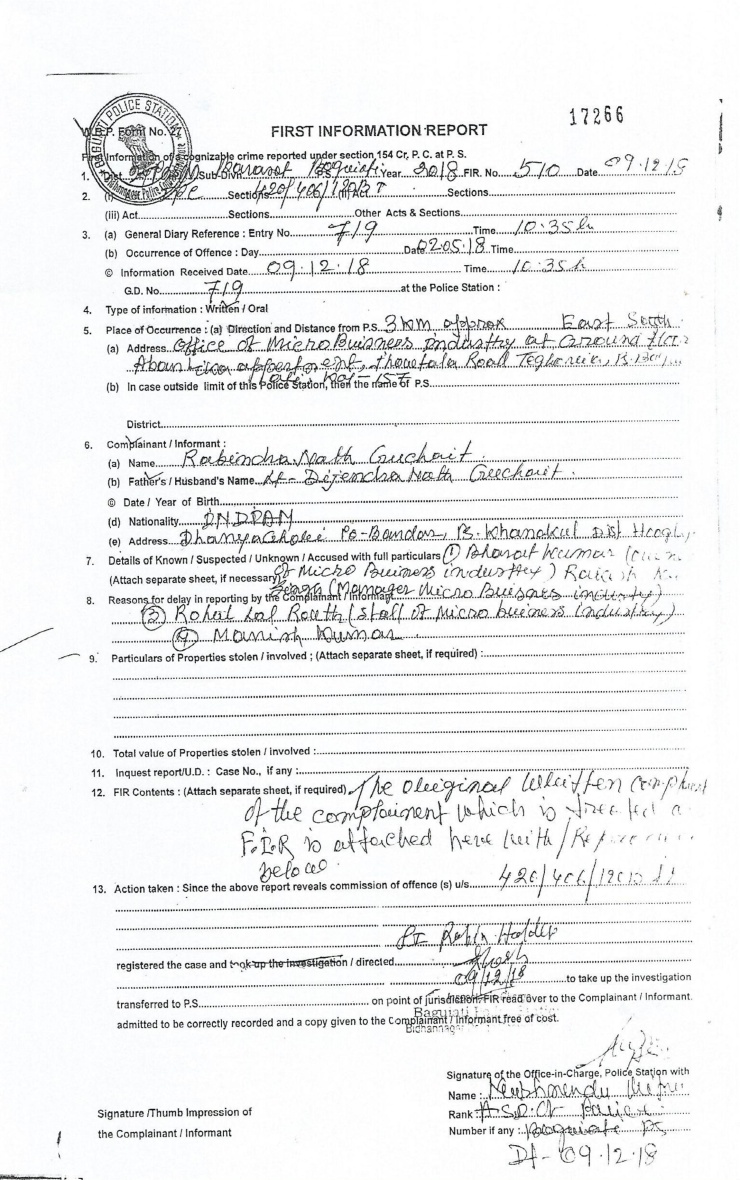 17266
BAGUIATI POLICE STATION
W.B.P. Form No. 27
FIRST INFORMATION REPORT
First Information of a cognizable crime reported under section 154 Cr, P. C. at P. S.
1. Dist. Sub-Divn. Barasat P.S. Baguiati Year 2018 FIR. No. 510 Date 09.12.18
2. (i) IPC Sections 420/406/120B (ii) Act Sections
(iii) Act Sections Other Acts & Sections
3. (a) General Diary Reference : Entry No. 719 Time 10:35 h
(b) Occurrence of Offence : Day Date 02.05.18 Time
© Information Received Date 09.12.18 Time 10:35 h
G.D. No. 719 at the Police Station :
4. Type of information : Written / Oral
5. Place of Occurrence : (a) Direction and Distance from P.S. 3 km approx East South
(a) Address Office of Micro Buisness industry at Ground
Road Teghoria,
(b) In case outside limit of this Police Station, then the name of P.S.
District
6. Complainant / Informant :
(a) Name Rabindra Nath Guchait
(b) Father's / Husband's Name Lt- Dijendra Nath Guchait.
© Date / Year of Birth
(d) Nationality INDIAN
(e) Address PO-Bandar, PS. Khanakul Dist Hoogly
7. Details of Known / Suspected / Unknown / Accused with full particulars (1) Bharat Kumar
(Attach separate sheet, if necessary) of Micro Buisness industry)
(Manager Micro Buisness industry)
8. Reasons for delay in reporting by the Complainant / Informant
(3) Rohat Lal Routh (Staff of Micro buisness industry)
(4) Manish Kumar
9. Particulars of Properties stolen / involved ; (Attach separate sheet, if required) :
10. Total value of Properties stolen / involved :
11. Inquest report/U.D. : Case No., if any :
12. FIR Contents : (Attach separate sheet, if required) The original written
of the complainent which is treated
F.I.R is attached here with /
below
13. Action taken : Since the above report reveals commission of offence (s) u/s 420/406/120B
SI Robin Halder
registered the case and took up the investigation / directed
09/12/18 to take up the investigation
transferred to P.S. on point of jurisdiction FIR read over to the Complainant / Informant.
Baguiati
admitted to be correctly recorded and a copy given to the Complainant / Informant free of cost.
Signature of the Office-in-Charge, Police Station with
Name :
Signature /Thumb Impression of
Rank
the Complainant / Informant
Number if any : Baguiati PS
Dt- 09.12.18